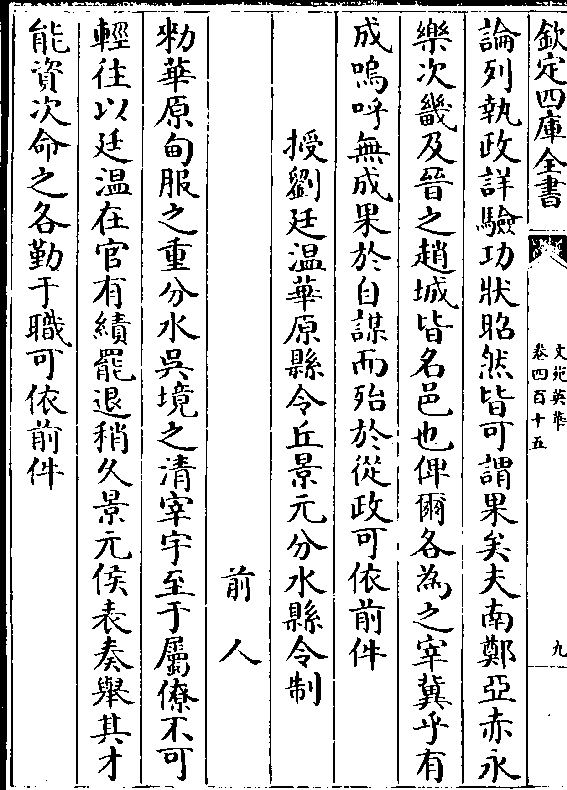 欽定四庫全書
文苑英華
卷四百十五
九
論列執政詳驗功狀昭然皆可謂果矣夫南鄭亞赤永
樂次畿及晉之趙城皆名邑也俾爾各為之宰冀乎有
成嗚呼無成果於自謀而殆於從政可依前件
授劉廷温華原縣令丘景元分水縣令制
前人
勑華原甸服之重分水吳境之清宰字至于屬僚不可
輕往以廷温在官有績罷退稍久景元侯表奏舉其才
能資次命之各勤于職可依前件